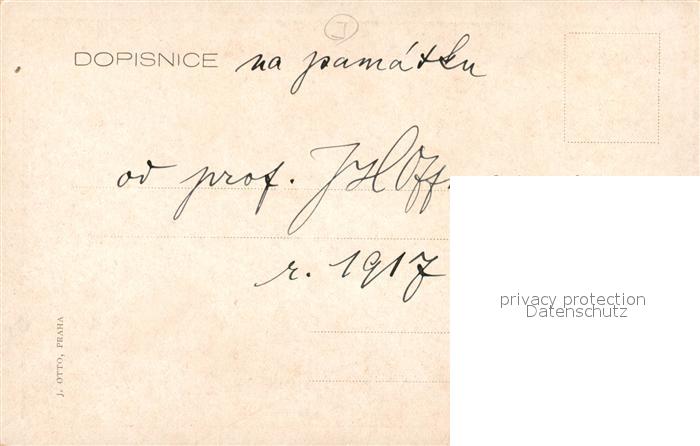 J
DOPISNICE na památku
od prof. J Hoff
r. 1917
privacy protection
Datenschutz
J. OTTO, PRAHA